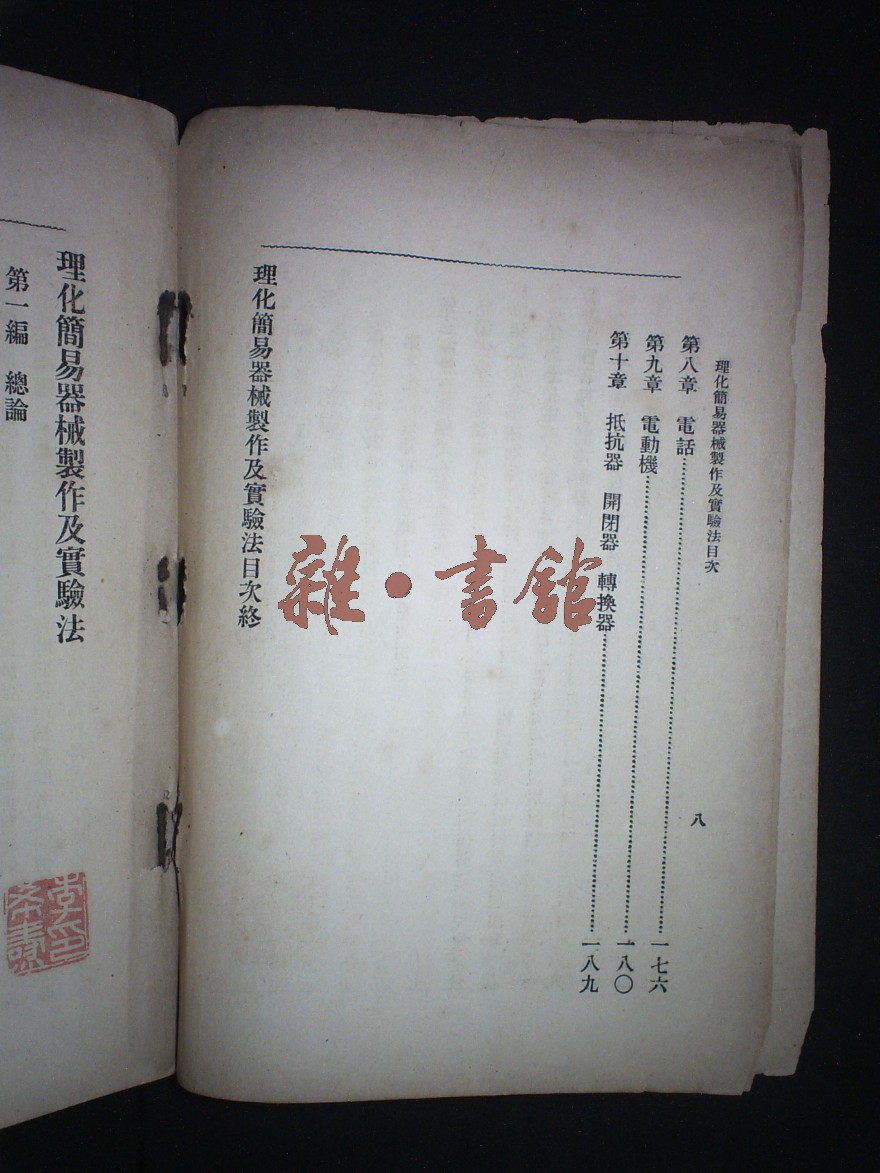 理化簡易器械製作及實驗法目次
八
第八章 電話 一七六
第九章 電動機 一八〇
第十章 抵抗器 開閉器 轉換器 一八九
理化簡易器械製作及實驗法目次終
雜·書館
理化簡易器械製作及實驗法
第一編 總論